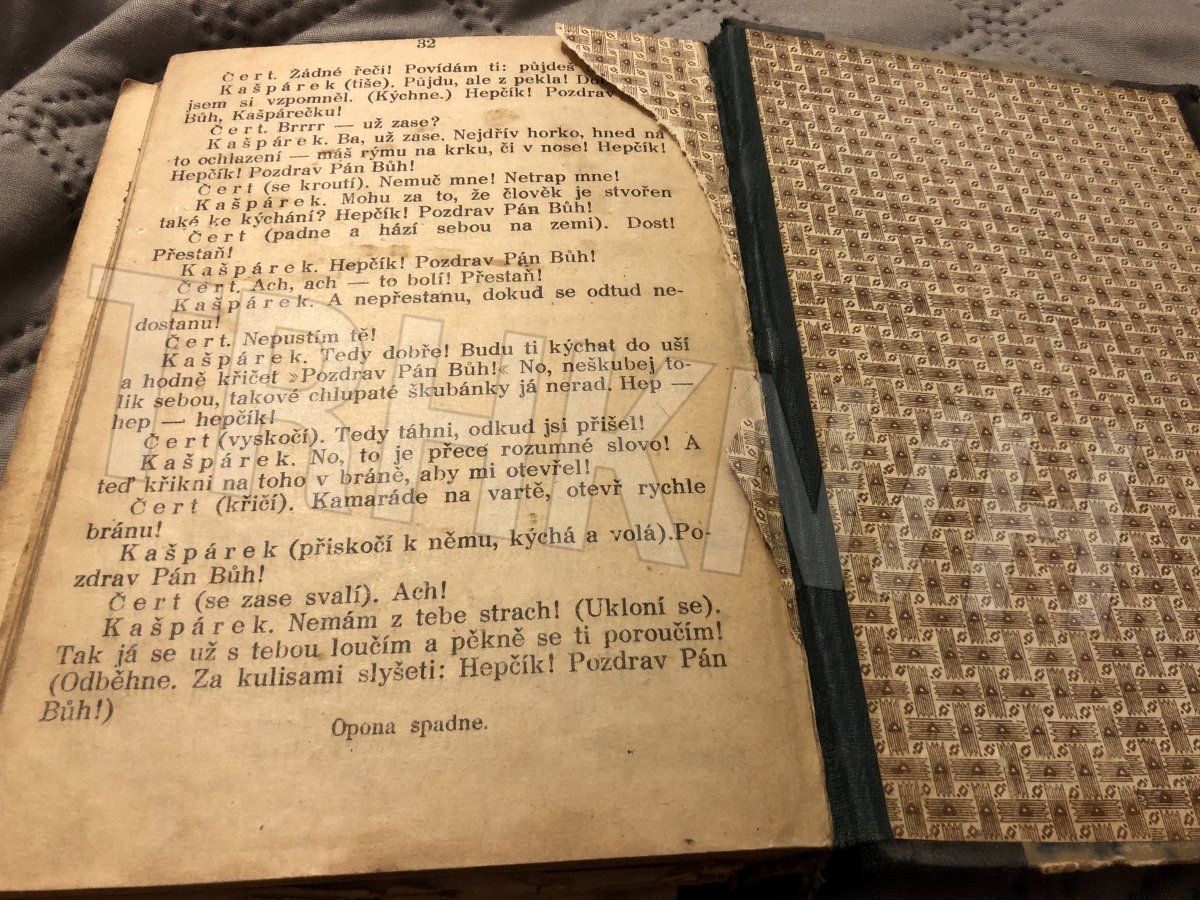 32
Čert. Žádné řeči! Povídám ti: půjdeš
Kašpárek (tiše). Půjdu, ale z pekla!
jsem si vzpomněl. (Kýchne.) Hepčík! Pozdrav
Bůh, Kašpárečku!
Čert. Brrrr — už zase?
Kašpárek. Ba, už zase. Nejdřív horko, hned na
to ochlazení — máš rýmu na krku, či v nose! Hepčík!
Hepčík! Pozdrav Pán Bůh!
Čert (se kroutí). Nemuč mne! Netrap mne!
Kašpárek. Mohu za to, že člověk je stvořen
také ke kýchání? Hepčík! Pozdrav Pán Bůh!
Čert (padne a hází sebou na zemi). Dost!
Přestaň!
Kašpárek. Hepčík! Pozdrav Pán Bůh!
Čert. Ach, ach — to bolí! Přestaň!
Kašpárek. A nepřestanu, dokud se odtud ne-
dostanu!
Čert. Nepustím tě!
Kašpárek. Tedy dobře! Budu ti kýchat do uší
a hodně křičet »Pozdrav Pán Bůh!« No, neškubej to-
lik sebou, takové chlupaté škubánky já nerad. Hep —
hep — hepčík!
Čert (vyskočí). Tedy táhni, odkud jsi přišel!
Kašpárek. No, to je přece rozumné slovo! A
teď křikni na toho v bráně, aby mi otevřel!
Čert (křičí). Kamaráde na vartě, otevř rychle
bránu!
Kašpárek (přiskočí k němu, kýchá a volá).Po-
zdrav Pán Bůh!
Čert (se zase svalí). Ach!
Kašpárek. Nemám z tebe strach! (Ukloní se).
Tak já se už s tebou loučím a pěkně se ti poroučím!
(Odběhne. Za kulisami slyšeti: Hepčík! Pozdrav Pán
Bůh!)
Opona spadne.